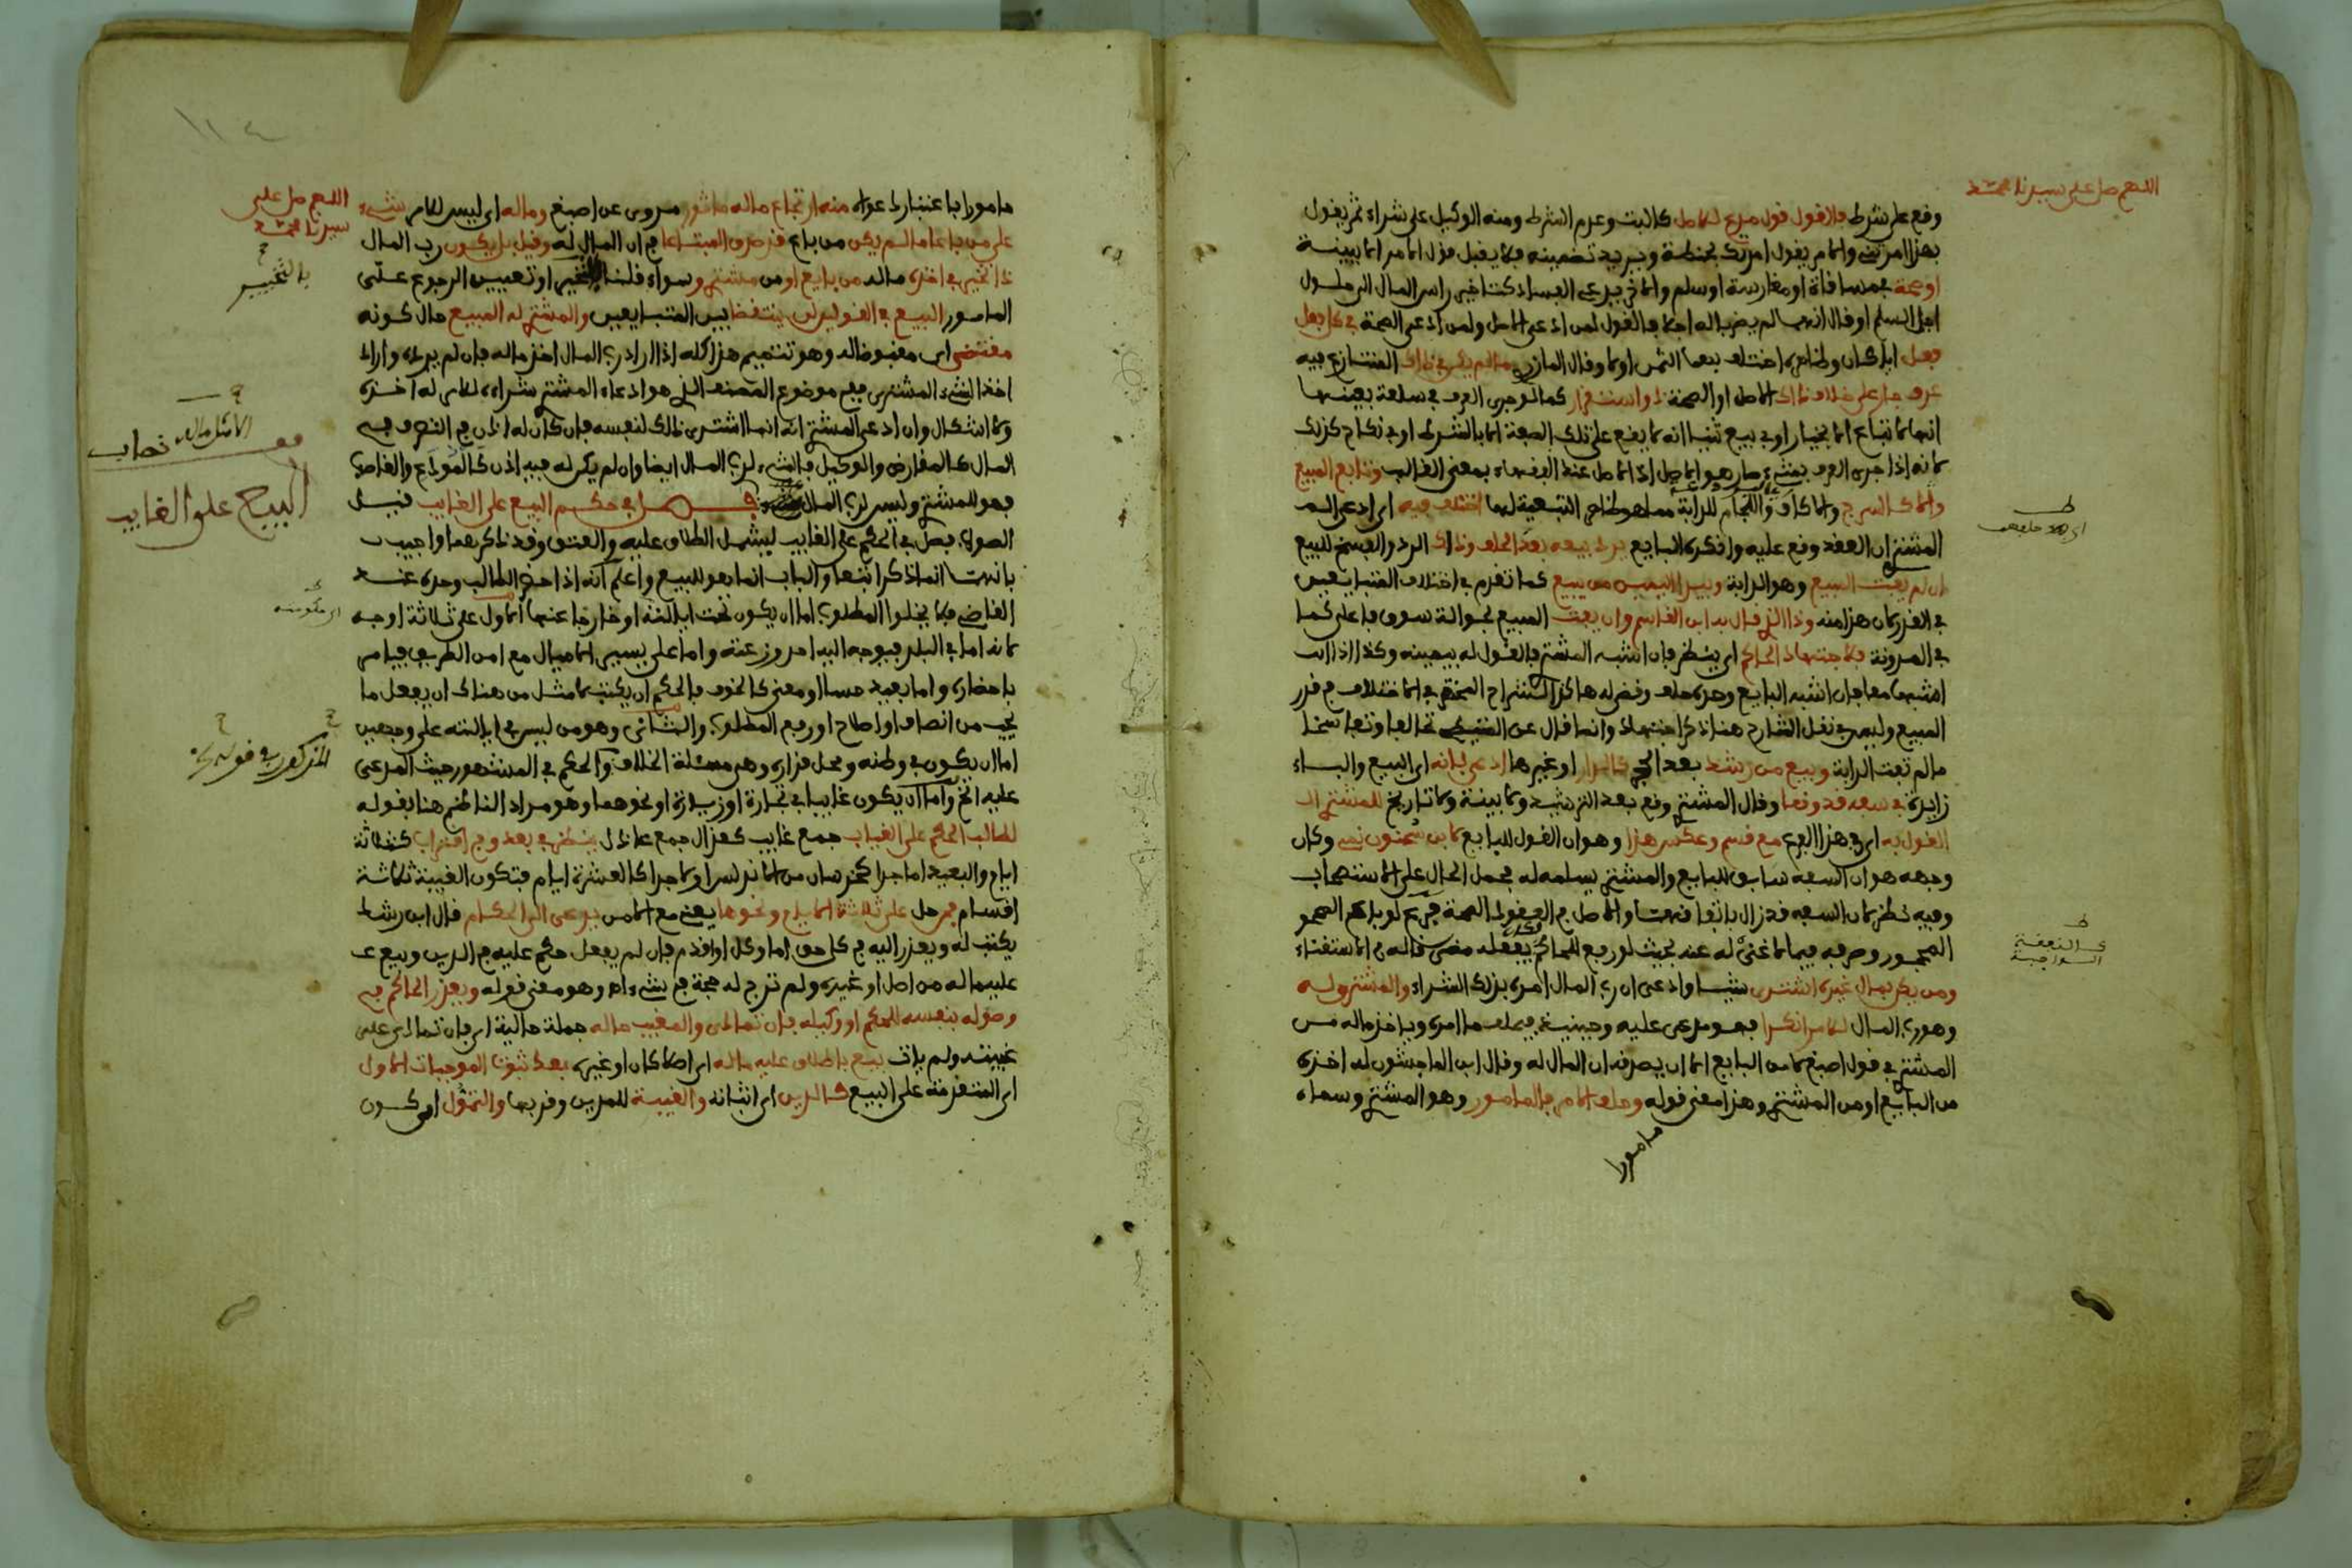 اللهم صل على سيدنا محمد
وقع على شرط فلا قول قول مدع للاصل كالبت وعدم الشرط ومنه الوكيل على شراء ثم يقول
بهذا امرتني والامر يقول امرتك بحنطة ويريد تضمينه فلا يقبل قول الامر الا ببينة
او صحة بمساقاة او مغارسة او سلم والاخر يدعي الفساد كتاخير راس المال الى حلول
اجل السلم او قال انهما لم يضربا له اجلا فالقول لمن ادعى الاصل ولمن ادعى الصحة في كل فعل
فعل اي كان وظاهره اختلف بهما الثمن اولا وقال المازري ما لم يكن في ذاك المتنازع فيه
عرف جار على خلاف ذاك الاصل او الصحة ذا واستقرار كما لو جرى العرف في سلعة بعينها
انها لا تباع الا بخيار او في بيع ثنيا انه لا يقع على تلك الصفة الا بالشرط او في نكاح كذلك
لانه اذا جرى العرف بشيء صار هو الاصل اذ الاصل عند الفقهاء بمعنى الغالب وتابع المبيع
والاكالسرج والاكاف واللجام للدابة مما هو ظاهر التبعية لها اختلف فيه اي ادعى الـ
المشتري ان العقد وقع عليه وانكره البايع يرد بيعه بعد الحلف وذاك الرد والفسخ للبيع
ان لم يفت المبيع وهو الدابة ويبدا اليمين من يبيع كما تقدم في اختلاف المتبايعين
في القدر لان هذا منه وذا الذي قال به ابن القاسم وان يفت المبيع بحوالة سوق فاعلى كما
في المدونة فلاجتهاد الحاكم اي ينظر فان اشبه المشتري فالقول له بيمينه وكذا اذا
اشبها معا فان اشبه البايع وحده حلف وقضي له هاكذا الشراح المحقق في الاختلاف في قدر
المبيع وليس في نقل الشارح هنا ذكر اجتهاد وانما قال عن تحالفا وتفاسخا
ما لم تفت الدابة وبيع من رشد بعد الحجر كالدار او غيرها ادعى بانه اي البيع والبـاء
زايدة في سفه قد وقعا وقال المشتري وقع بعد الترشيد ولا بينة ولا تاريخ للمشتري
القول به اي في هذا الفرع مع قسم وعكس هذا وهو ان القول للبايع لابن سحنون نمي وكان
وجهه هو ان السفه سابق للبايع والمشتري يسلمه له فحمل الحال على الاستصحاب
وفيه نظر لان السفه قد زال باتفاقهما والاصل في العقود الصحة فرع لو باع المحجور
المحجور وصرفه فيما لا غنى له عنه بحيث لو رفع للحاكم يفعله مضى قاله في الاستغناء
ومن يكن بمال غيره اشترى شيا وادعى ان رب المال امره بذلك الشراء والمشترى له
وهو رب المال للامر انكرا فهو مدعى عليه وحينيذ يحلف ما امره وياخذ ماله من
المشتري في قول اصبغ لا من البايع الا ان يصرفه ان المال له وقال ابن الماجشون له اخذه
من البايع او من المشتري وهذا معنى قوله وحلف الامر فالمامور وهو المشتري وسماه
مامورا
ط
اي بعد حلفهما
ط
اي النفقة
الواجبة
١١٤
اللهم صل على
سيدنا محمد
مامورا باعتبار دعواه منه ارتجاع ماله ماثور مروي عن اصبغ وماله اي ليس للامر شيء
على من باعا ما لم يكن من باع قد صدق المبتاعا في ان المال له وقيل بل يكون رب المال
ذا تخيير في اخذه ماله من بايع او من مشتر وسواء قلنا بالتخيير او تعيين الرجوع على
المامور البيع في القولين لن ينتقضا بين المتبايعين والمشترى له المبيع حال كونه
مقتضى اي مقبوضا له وهو تتميم هذا كله اذا اراد رب المال اخذ ماله فان لم يرده واراد
اخذ الشيء المشترى ففي موضوع المصنف الذي هو ادعاء المشتري شراءه للامر له اخذه
ولا اشكال وان ادعى المشتري انه انما اشترى ذلك لنفسه فان كان له اذن في التصرف في
المال كالمقارض والوكيل فالشيء لرب المال ايضا وان لم يكن له فيه اذن كالمودع والغاصب
فهو للمشتري وليس لرب المال فصل في حكم البيع على الغايب قيـل
الصواب فصل في الحكم على الغايب ليشمل الطلاق عليه والعتق وقد ذكرهما واجيب
بانهما انما ذكرا تبعا والباب انما هو للبيع واعلم انه اذا حضر الطالب وحده عند
القاضي فلا يخلوا المطلوب اما ان يكون تحت ايالته او خارجا عنها الاول على ثلاثة اوجه
لانه اما في البلد فيوجه اليه احد وزعته واما على يسير الاميال مع امن الطريق فيامر
باحضاره واما بعيد حسا او معنى كالخوف فالحكم ان يكتب لامثل من هناك ان يفعل ما
يجب من انصاف او اصلاح او رفع المطلوب والثاني وهو من ليس في ايالته على وجهين
اما ان يكون في وطنه ومحل قراره وهي مسئلة الخلاف والحكم في المشهور حيث المدعى
عليه الخ واما ان يكون غايبا في تجارة او زيارة او نحوهما وهو مراد الناظم هنا بقوله
لطالب الحكم على الغياب جمع غايب كعزال جمع عاذل ينظر في بعد وفي اقتراب كثلاثة
ايام والبعيد اما جدا كخرسان من الاندلس او لا جدا كالعشرة ايام فتكون الغيبة ثلاثة
اقسام فمن حل على ثلاثة الايام ونحوها يعني مع الامن يدعى الى الحكام قال ابن رشد
يكتب له ويعذر اليه في كل حق اما وكل او اقدم فان لم يفعل حكم عليه في الدين وبيع عـ
عليه ماله من اصل او غيره ولم ترج له حجة في شيء اه وهو معنى قوله ويعذر الحاكم في
وصوله بنفسه للحكم او وكيله فان تمادى والمغيب حاله جملة حالية اي فان تمادى على
غيبته ولم يات بيع باطلاق عليه ماله اي اصلا كان او غيره بعد ثبوت الموجبات الاول
اي المتقدمة على البيع كالدين اي اثباته والغيبة للمدين وقربها والتمول اي كـون
ح
بالتخيير
البيع على الغايب
اي حكومته
المذكور في قوله